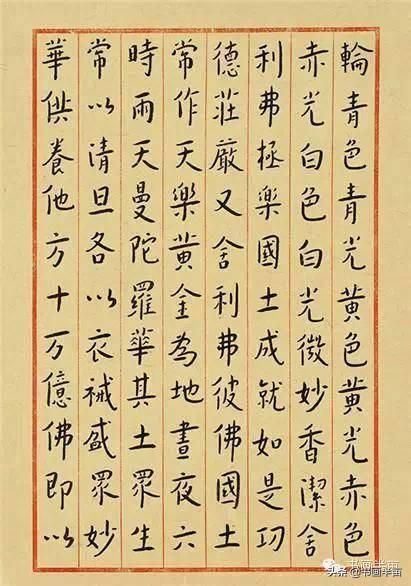 輪青色青光黃色黃光赤色
赤光白色白光微妙香潔舍
利弗極樂國土成就如是功
德莊嚴又舍利弗彼佛國土
常作天樂黃金為地晝夜六
時雨天曼陀羅華其土眾生
常以清旦各以衣裓盛眾妙
華供養他方十万億佛即以
书画半亩
头条 @书画半亩